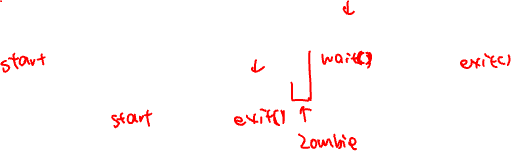 start wait() exit()
start exit()
zombie